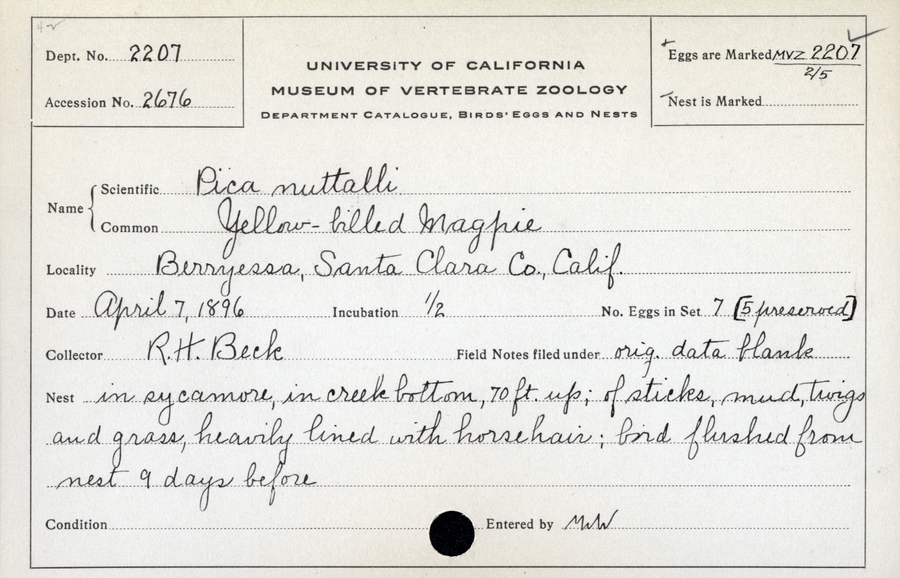 Dept. No. 2207
Accession No. 2676
UNIVERSITY OF CALIFORNIA
MUSEUM OF VERTEBRATE ZOOLOGY
DEPARTMENT CATALOGUE, BIRDS' EGGS AND NESTS
Eggs are Marked MVZ 2207
2/5
Nest is Marked
Name
Scientific Pica nuttalli
Common Yellow-billed Magpie
Locality Berryessa, Santa Clara Co., Calif.
Date April 7, 1896 Incubation 1/2 No. Eggs in Set 7 [5 preserved]
Collector R.H. Beck Field Notes filed under orig. data blank
Nest in sycamore, in creek bottom, 70 ft. up; of sticks, mud, twigs
and grass, heavily lined with horsehair; bird flushed from
nest 9 days before
Condition Entered by